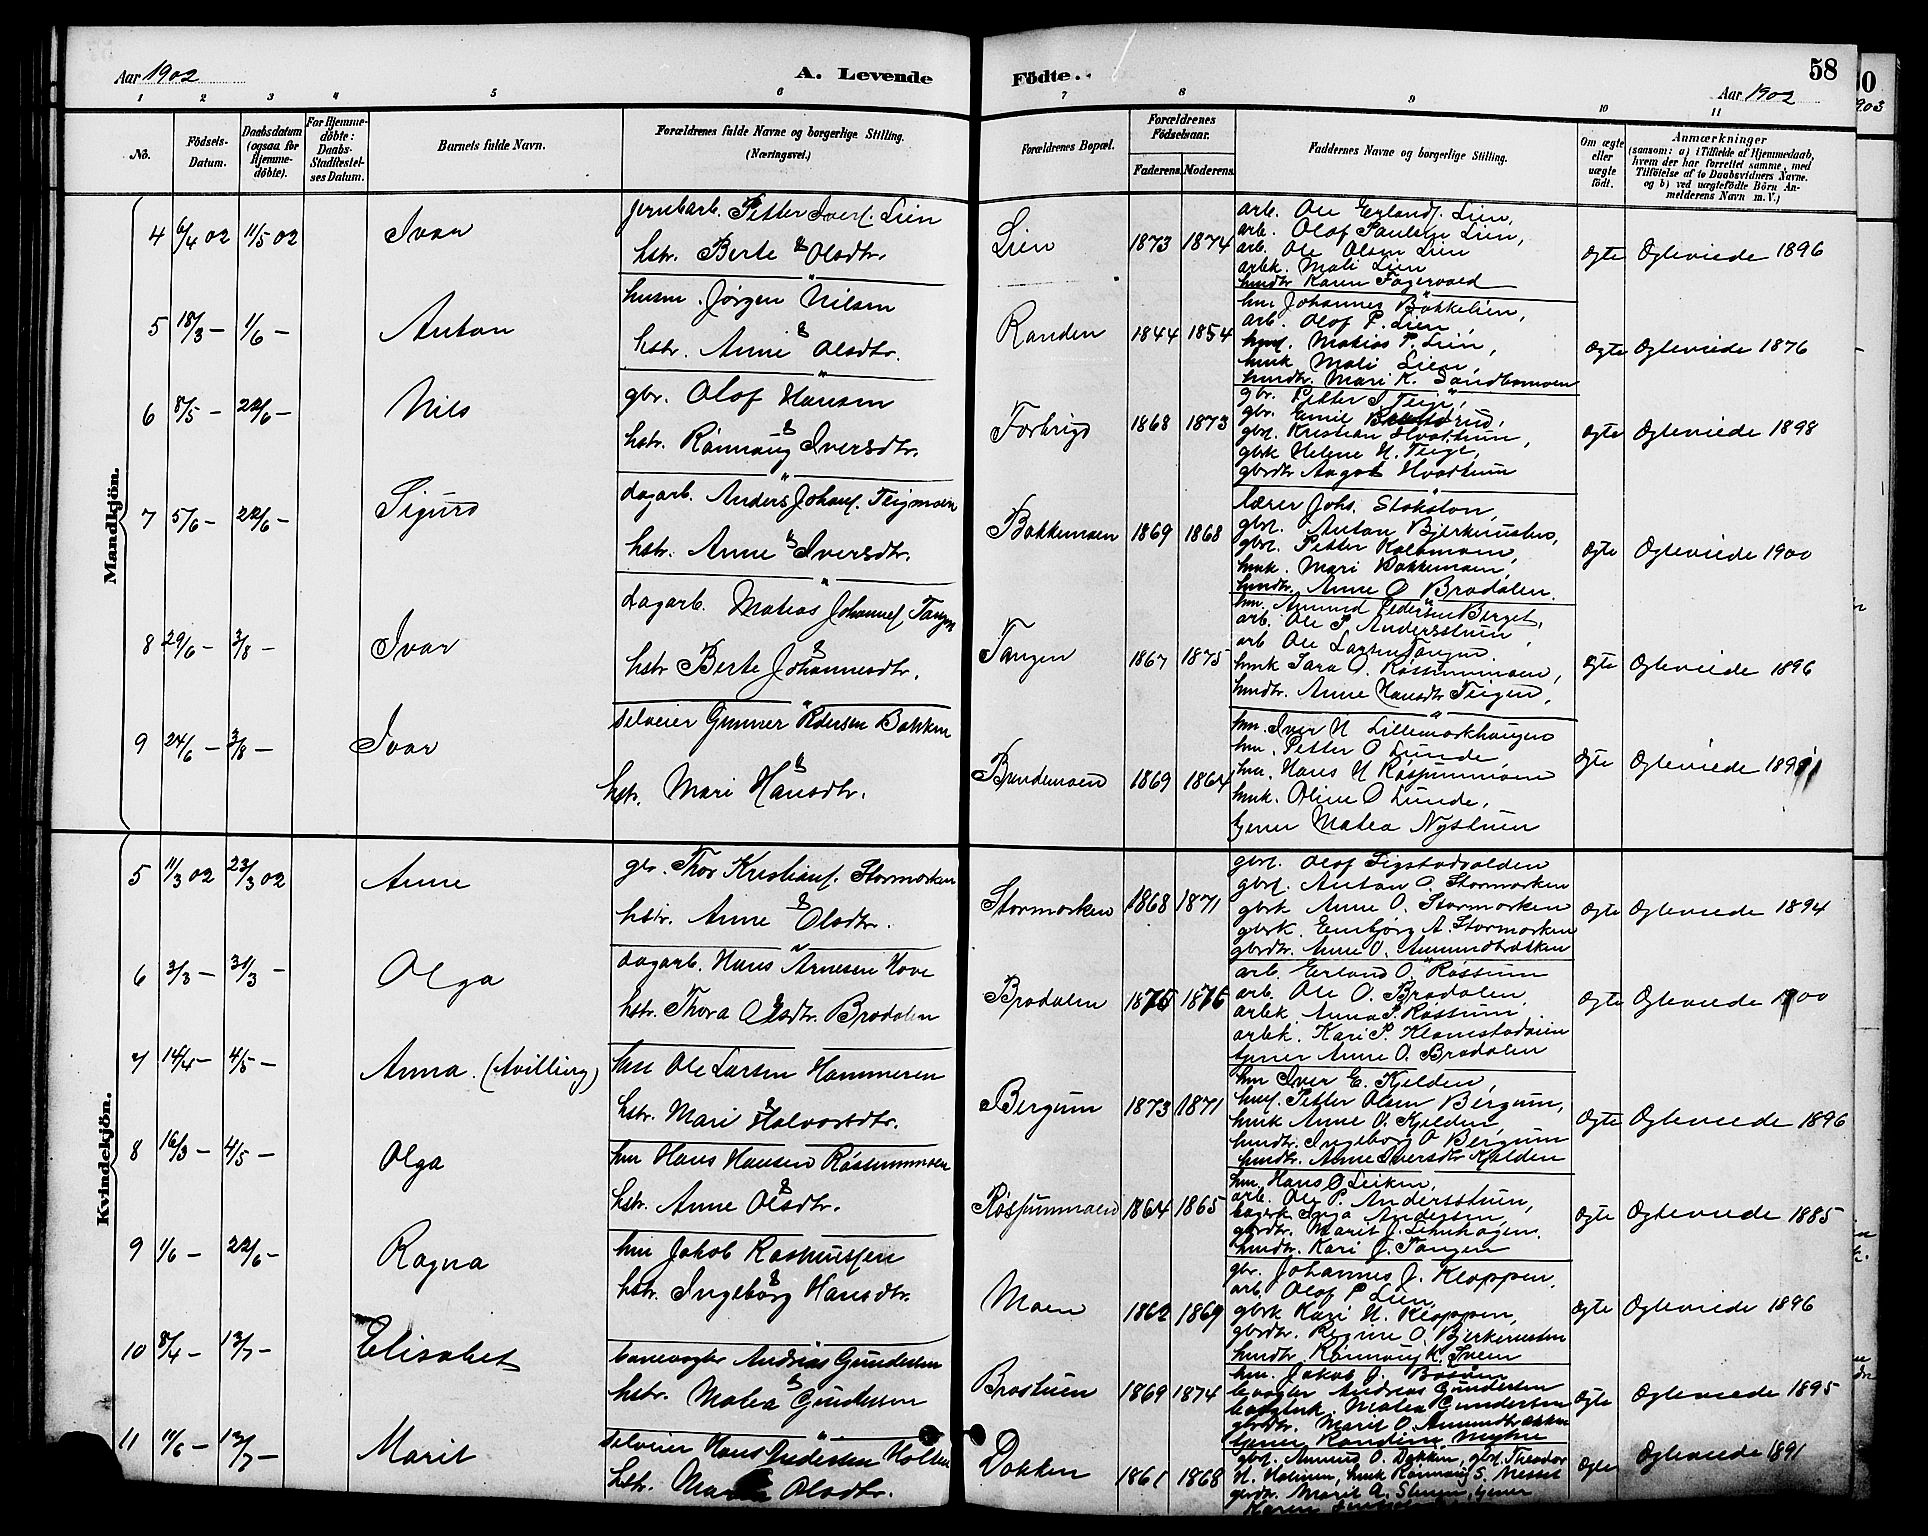 Aar 1902
A. Levende
Födte.
58
Aar 1902
1 2 3 4 5 6 7 8 9 10 11
No.
Födsels-Datum.
Daabsdatum (ogsaa for Hjemme-döbte).
For Hjemme-döbte: Daabs-Stadfæstel-ses Datum.
Barnets fulde Navn.
Forældrenes fulde Navne og borgerlige Stilling. (Næringsvei.)
Forældrenes Bopæl.
Forældrenes Födselsaar.
Faderens. Moderens.
Faddernes Navne og borgerlige Stilling.
Om ægte eller uægte födt.
Anmærkninger
(saasom: a) i Tilfælde af Hjemmedaab, hvem der har forrettet samme, med Tilföielse af to Daabsvidners Navne. og b) ved uægtefödte Börn An-melderens Navn m.V.)
Mandkjön.
4 6/4 02 11/5 02 Ivar
jernbarb. Petter Ivers. Lien
&
hstr. Berte Olsdtr.
Lien 1873 1874
arb. Ole Erlands. Lien,
arb. Olof Paulsen Lien,
arb. Ole Olsen Lien
arbk. Mali Lien
hmdtr Karen Fagervold
Ægte Ægteviede 1896
5 18/3 – 1/6 – Anton
husm. Jørgen Nilsen
&
hstr. Anne Olsdtr.
Randen 1844 1854
hm. Johannes Bakkelien,
arb. Olof P. Lien,
hms. Matias P. Lien,
hmk Mali Lien,
hmdtr. Mari K. Sandbomoen
Ægte Ægteviede 1876
6 8/5 – 22/6 – Nils
gbr. Olof Hansen
&
hstr. Rønnaug Iversdtr.
Forbrigd 1868 1873
gbr. Petter I Teige,
gbr. Emil
gbs. Kristian Hvattum,
gbrk Helene H. Teige,
gbrdtr Aagot Hvattum
Ægte Ægteviede 1898
7 5/6 – 22/6 – Sigurd
dagarb. Anders Johans. Teigmoen
&
hstr. Anne Iversdtr.
Bakkemoen 1869 1868
lærer Johs. Stokstad,
gbs. Anton Bjerkenesten,
gbs. Petter
hmk. Mari Bakkemoen,
hmdtr. Anne O Bradalen.
Ægte Ægteviede 1900
8 29/6 – 3/8 – Ivar
dagarb. Matias Johannes. Tangen
&
hstr Berte Johannesdtr.
Tangen 1867 1875
hm. Amund Pedersen Berget,
arb. Ole P Andersstuen,
arb Ole Larsen Tangen
hmk Sara O. Røssummoen,
hmdtr. Anne Hansdtr Teigen,
Ægte Ægteviede 1896
9 24/6 – 3/8 – Ivar
selveier Gunner Pedersen Bakken
&
hstr. Mari Hansdtr.
Brendemoen 1869 1864
hm. Iver H Lillemorkhaugen
hm. Petter O Lunde,
hm. Hans H Røssummoen
hmk. Oline O Lunde,
tjener Matea Nystuen
Ægte Ægteviede 1891
Kvindekjön.
5 11/3 02 23/3 02 Anne
gbr. Thor Kristians. Stormorken
&
hstr. Anne Olsdtr.
Stormorken 1868 1871
gbs. Olof Sigstadvolden
gbs. Anton O. Stormorken
gbrk Anne O. Stormorken
gbrk. Embjørg A. Stormorken
gbrdtr. Anne O. Amundbakken
Ægte Ægteviede 1894
6 3/3 – 31/3 – Olga
dagarb. Hans Arnesen Hove
&
hstr. Thora Olsdtr. Bradalen
Bradalen 1875 1876
arb. Erland O. Røssum
arb. Ole O. Bradalen
arbk. Anna P. Røssum
arbk. Kari P. Klomstadøien
tjener Anne O. Bradalen
Ægte Ægteviede 1900
7 14/4 – 4/5 – Anna. (tvilling)
hm Ole Larsen Hammeren
&
hstr. Mari Halvorsdtr.
Bergum 1873 1871
hm Iver E. Kjelden,
hms. Petter Olsen Bergum,
hmk Anne O. Kjelden,
hmdtr. Ingeborg O Bergum
hmdtr. Anne Iversdtr Kjelden
Ægte Ægteviede 1896
8 16/3 – 4/5 – Olga
hm Hans Hansen Røssummoen
&
hstr. Anne Olsdtr.
Røssummoen 1864 1865
hm. Hans O Leiken,
arb. Ole P. Andersstuen,
Inga Andersen,
gbrdtr. Marit J. Lunhagen.
hmdtr. Kari J. Tangen
Ægte Ægteviede 1885
9 1/6 – 22/6 – Ragna
hm Jakob Rasmussen
&
hstr. Ingeborg Hansdtr.
Moen 1862 1869
gbr. Johannes J. Kloppen,
arb. Olof P Lien,
gbrk Kari H. Kloppen,
gbrdtr. Regine O. Bjerkenesten
hmdtr. Rønnaug K. Sveen
Ægte Ægteviede 1896
10 8/4 – 13/7 – Elisabet
banevogter Andrias Gundersen
&
hstr. Matea Gundersen
Brostuen 1869 1874
hm. Jakob J. Baaden
bvogter Andreas Gundersen
Matea Gundersen
gbrdtr. Marit O. Amundbakken
tjener Randine Myhre
Ægte Ægteviede 1895
11 11/6 – 13/7 – Marit
selveier Hans Pedersen Holtn
hstr. Mar Olsdtr.
Dokken 1861 1868
gbs. Amund O. Dokken, gbs. Theodor
H. Holmen, hmk Rønnaug S. Nesset
gbrdtr. Marit A. Stuen, tjener
Karen
Ægte Ægteviede 1891